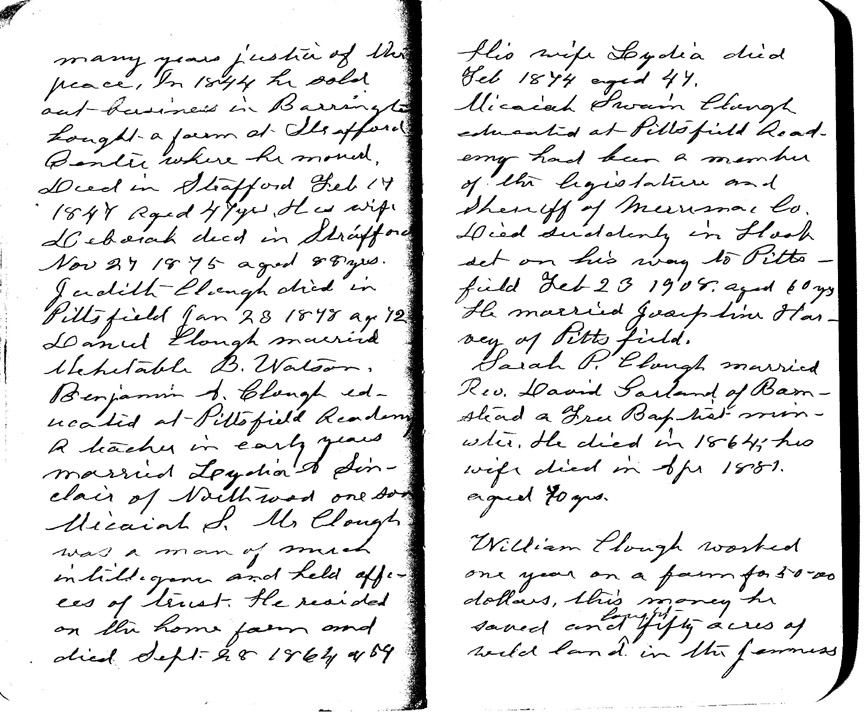 many years justice of the
peace, In 1844 he sold
out business in Barringto
bought a farm at Strafford
Centre where he moved.
Died in Strafford Feb 14
1847 aged 47yrs. His wife
Deborah died in Strafford
Nov 27 1875 aged 88yrs.
Judith Clough died in
Pittsfield Jan 23 1878 ag 72
Daniel Clough married
Mehitable B. Watson.
Benjamin S. Clough ed-
ucated at Pittsfield Academy
A teacher in early years
married Lydia S Sin-
clair of Northwood one son
Micaiah S. Mr Clough
was a man of much
intilligence and held offi-
ces of trust. He resided
on the home farm and
died Sept. 28 1864 a 59
His wife Lydia died
Feb 1874 aged 47.
Micaiah Swain Clough
educated at Pittsfield Acad-
emy had been a member
of the legislature and
Sheriff of Merrimac Co.
Died suddenly in Hook
set on his way to Pitts-
field Feb 23 1908. aged 60 yrs
He married Josephine Har-
vey of Pittsfield.
Sarah P. Clough married
Rev. David Garland of Barn-
stead a Free Baptist min-
ister. He died in 1864; his
wife died in Apr 1881.
aged 70 yrs.
William Clough worked
one year on a farm for 50-00
dollars, this money he
saved and bought fifty acres of
wild land in the